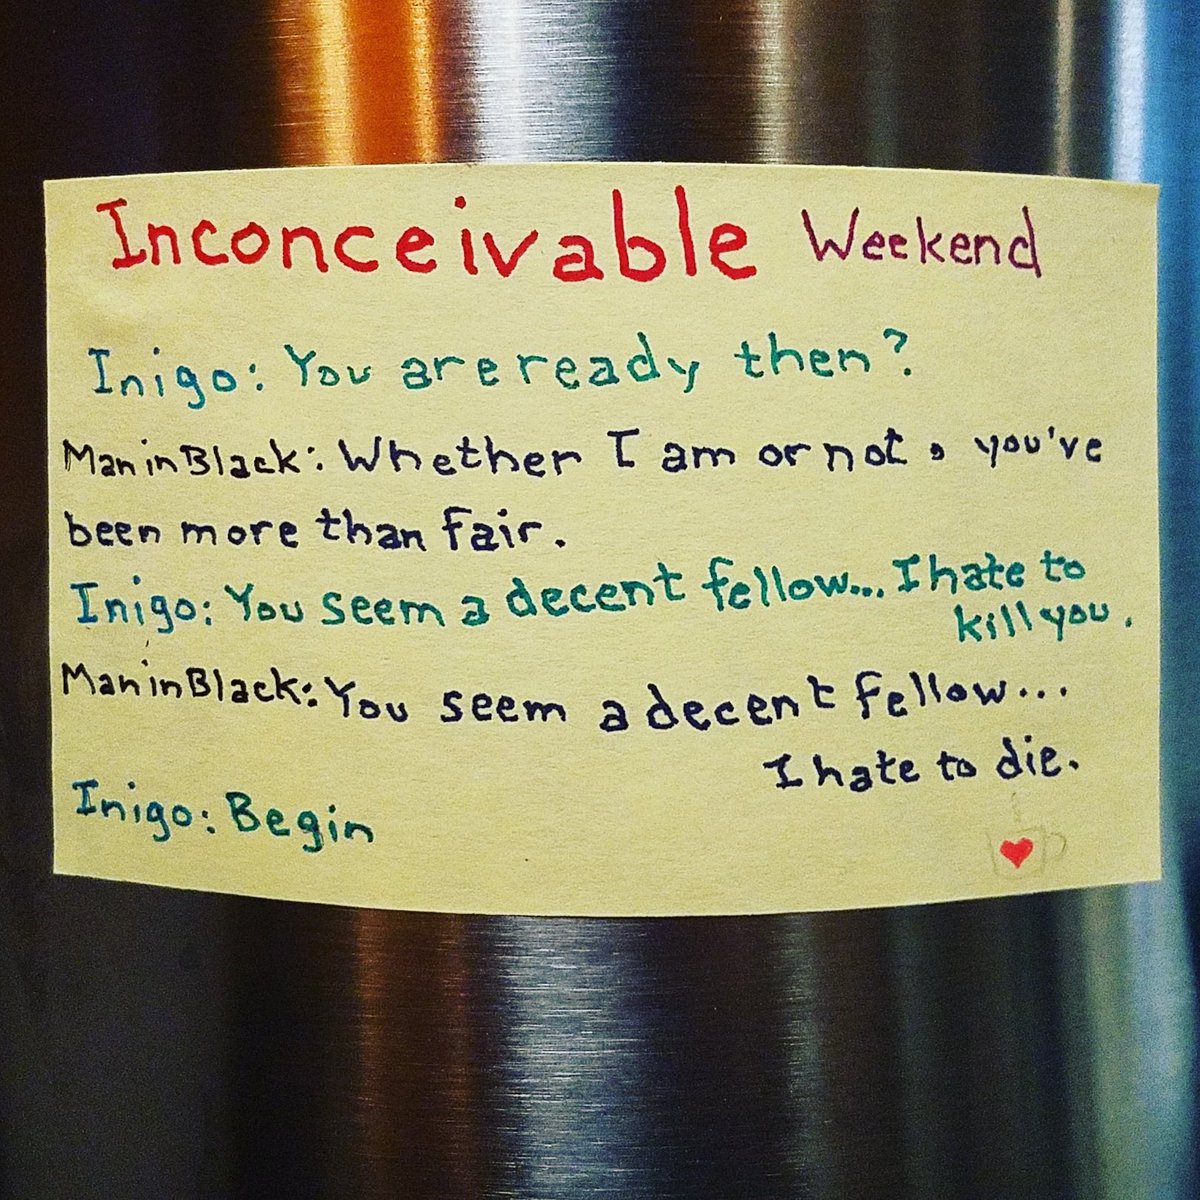 Inconceivable Weekend
Inigo: You are ready then?
Man in Black: Whether I am or not, you've
been more than fair.
Inigo: You seem a decent fellow... I hate to
kill you.
Man in Black: You seem a decent fellow...
I hate to die.
Inigo: Begin